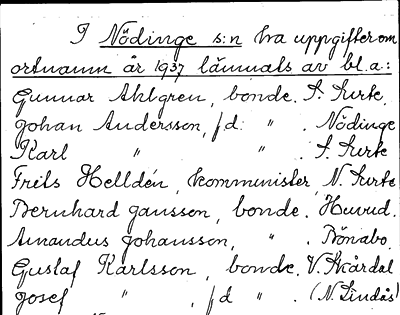 I Nödinge s:n ha uppgifter om
ortnamn år 1937 lämnats av bl.a:
Gunnar Ahlgren, bonde. S. Surte.
Johan Andersson, f.d. " . Nödinge
Karl " " . S. Surte
Frits Helldén, kommunister, N. Surte
Bernhard Jansson, bonde. Huvud.
Amandus Johansson, " . Bönabo.
Gustaf Karlsson, bonde. V. Skårdal
Josef " , f.d " . (N. Lindås)